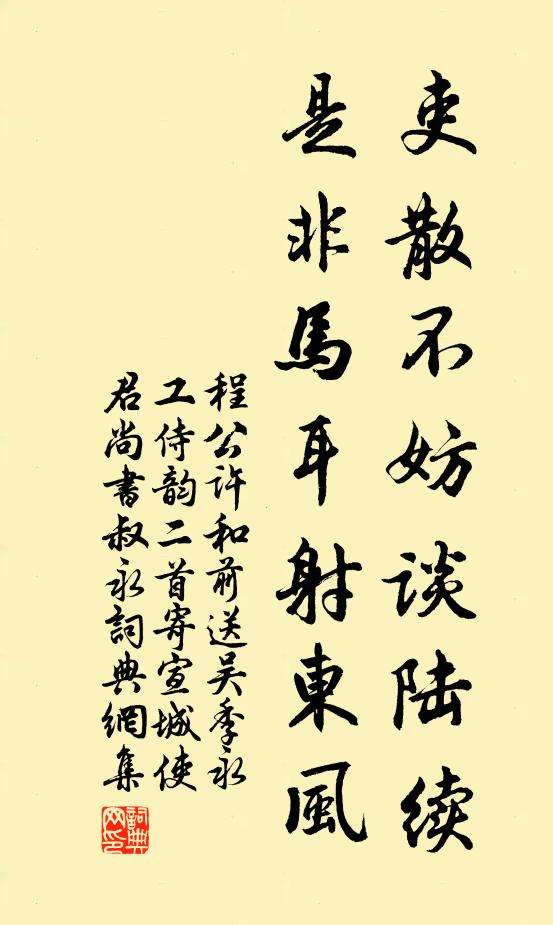 吏散不妨谈陆续
是非馬耳射東風
程公许和前送吴季永
工侍韵二首寄宣城使
君尚書叔永詞典網集
詞典网印